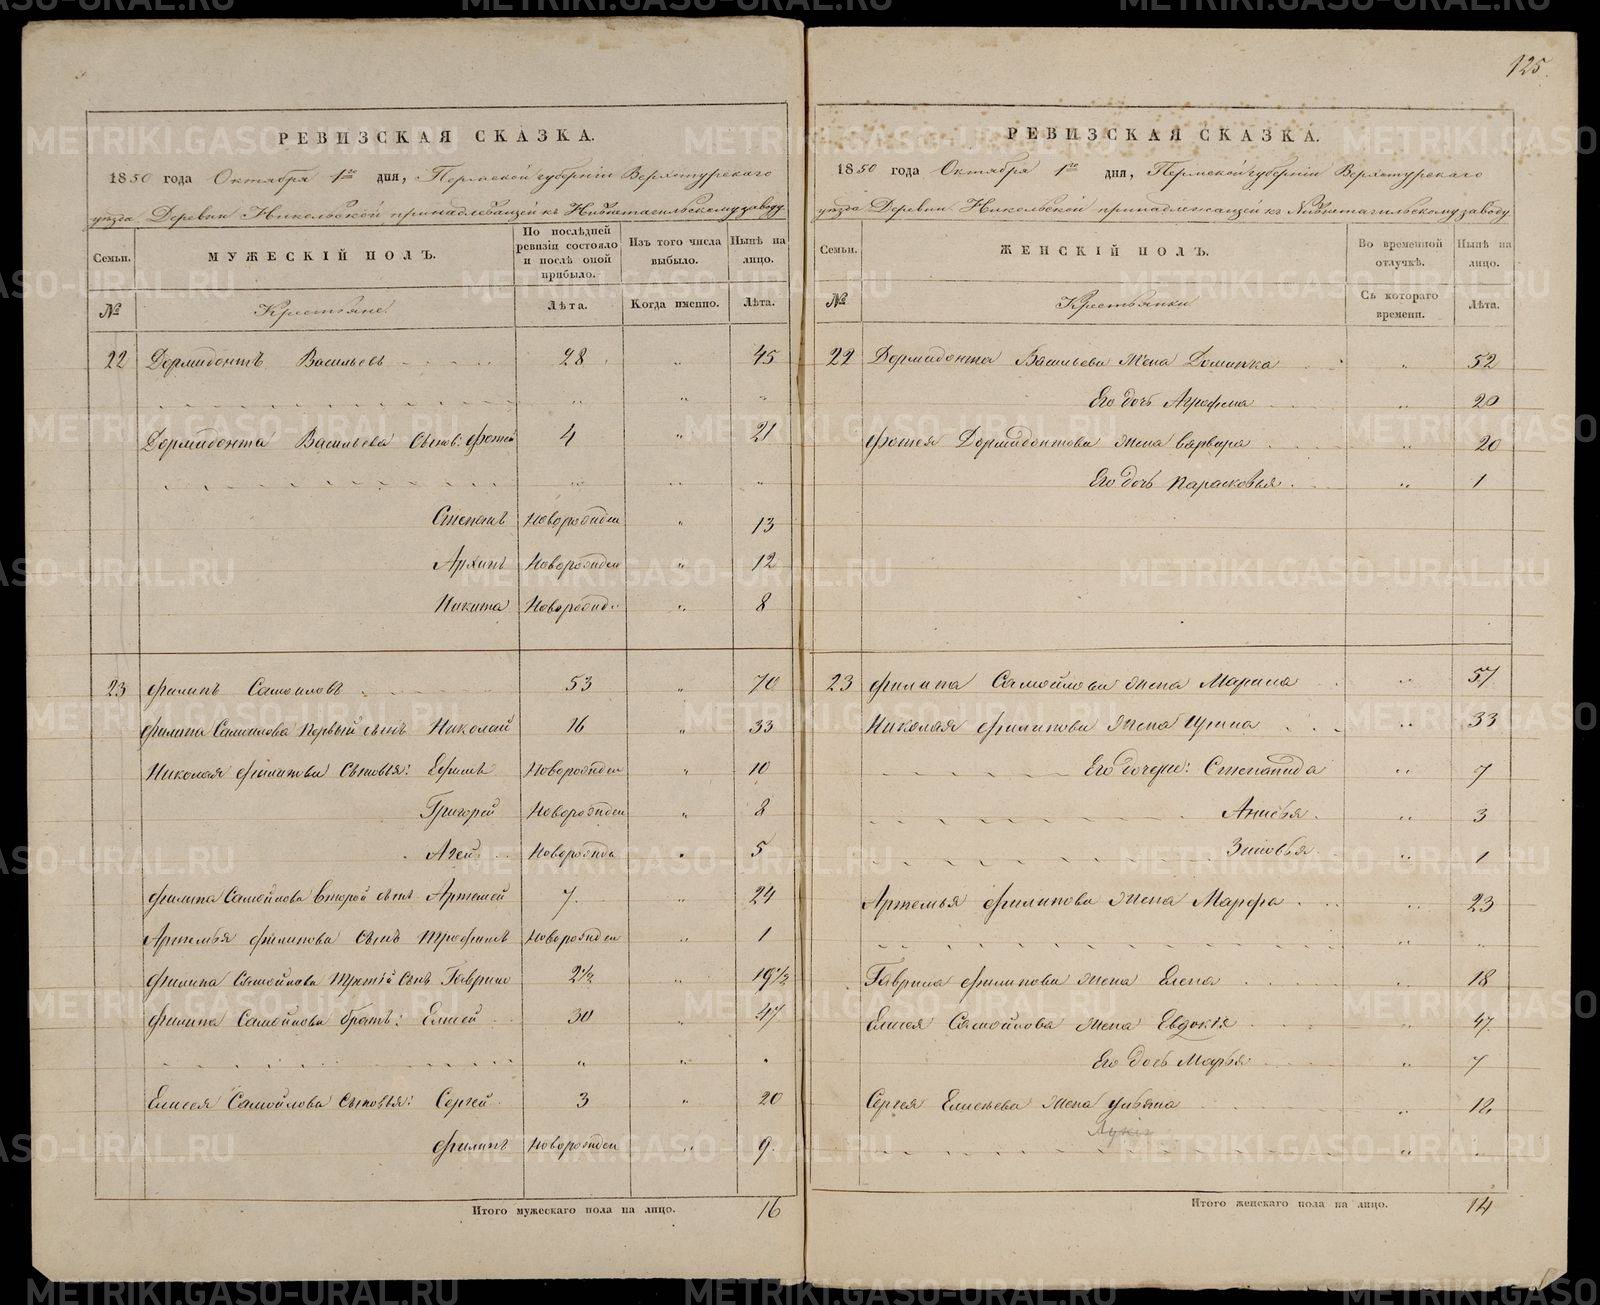 125.
РЕВИЗСКАЯ СКАЗКА.
1850 года Октября 1го дня, Пермской губернiи Верхотурскаго
уезда Деревни Никольской принадлежащей к Нижнетагильскому заводу
Семьи.
МУЖЕСКIЙ ПОЛЪ.
По послѣдней ревизiи состояло и послѣ оной прибыло.
Изъ того числа выбыло.
Нынѣ на лицо.
№ Крестьяне Лѣта. Когда именно. Лѣта.
22 Дормидонтъ Васильевъ 28 „ 45
Дормидонта Васильева Сынов: Фотей 4 „ 21
Степанъ Новорожден „ 13
Архипъ Новорожден „ 12
Никита Новорожд „ 8
23 Филипъ Самойловъ 53 „ 70
Филипа Самойлова Первый сынъ Николай 16 „ 33
Николая Филипова Сыновья: Ефимъ Новорожден „ 10
Григорей Новорожден „ 8
Агей Новорожде „ 5
Филипа Самойлова Второй сынъ Артемей 7. „ 24
Артемья Филипова Сынъ Трофимъ Новорожден „ 1
Филипа Самойлова Третiй Сынъ Гаврило 2½ „ 19½
Филипа Самойлова братъ: Елисей 30 „ 47
Елисея Самойлова Сыновья: Сергей 3 „ 20
Филипъ Новорожден „ 9.
Итого мужескаго пола на лицо. 16
РЕВИЗСКАЯ СКАЗКА.
1850 года Октября 1го дня, Пермской губернiи Верхотурскаго
уезда Деревни Никольской принадлежащей къ Нижнетагильскому заводу
Семьи.
ЖЕНСКIЙ ПОЛЪ.
Во временной отлучкѣ.
Нынѣ на лицо.
№ Крестьянки Съ котораго времени. Лѣта.
22 Дормидонта Васильева Жена Домника „ 52
Его дочь Аграфена „ 20
Фотея Дормидонтова жена Варвара „ 20
Его дочь Парасковья „ 1
23 Филипа Самойлова жена Марина „ 57
Николая Филипова Жена Ирина „ 33
Его дочери: Степанида „ 7
Анисья „ 3
Зиновья „ 1
Артемья Филипова Жена Марфа „ 23
Гаврила Филипова жена Елена „ 18
Елисея Самойлова жена Евдокiя „ 47
Его дочь Марья „ 7
Сергея Елисеева жена Ульяна „ 18
Итого женскаго пола на лицо. 14
METRIKI.GASO-URAL.RU